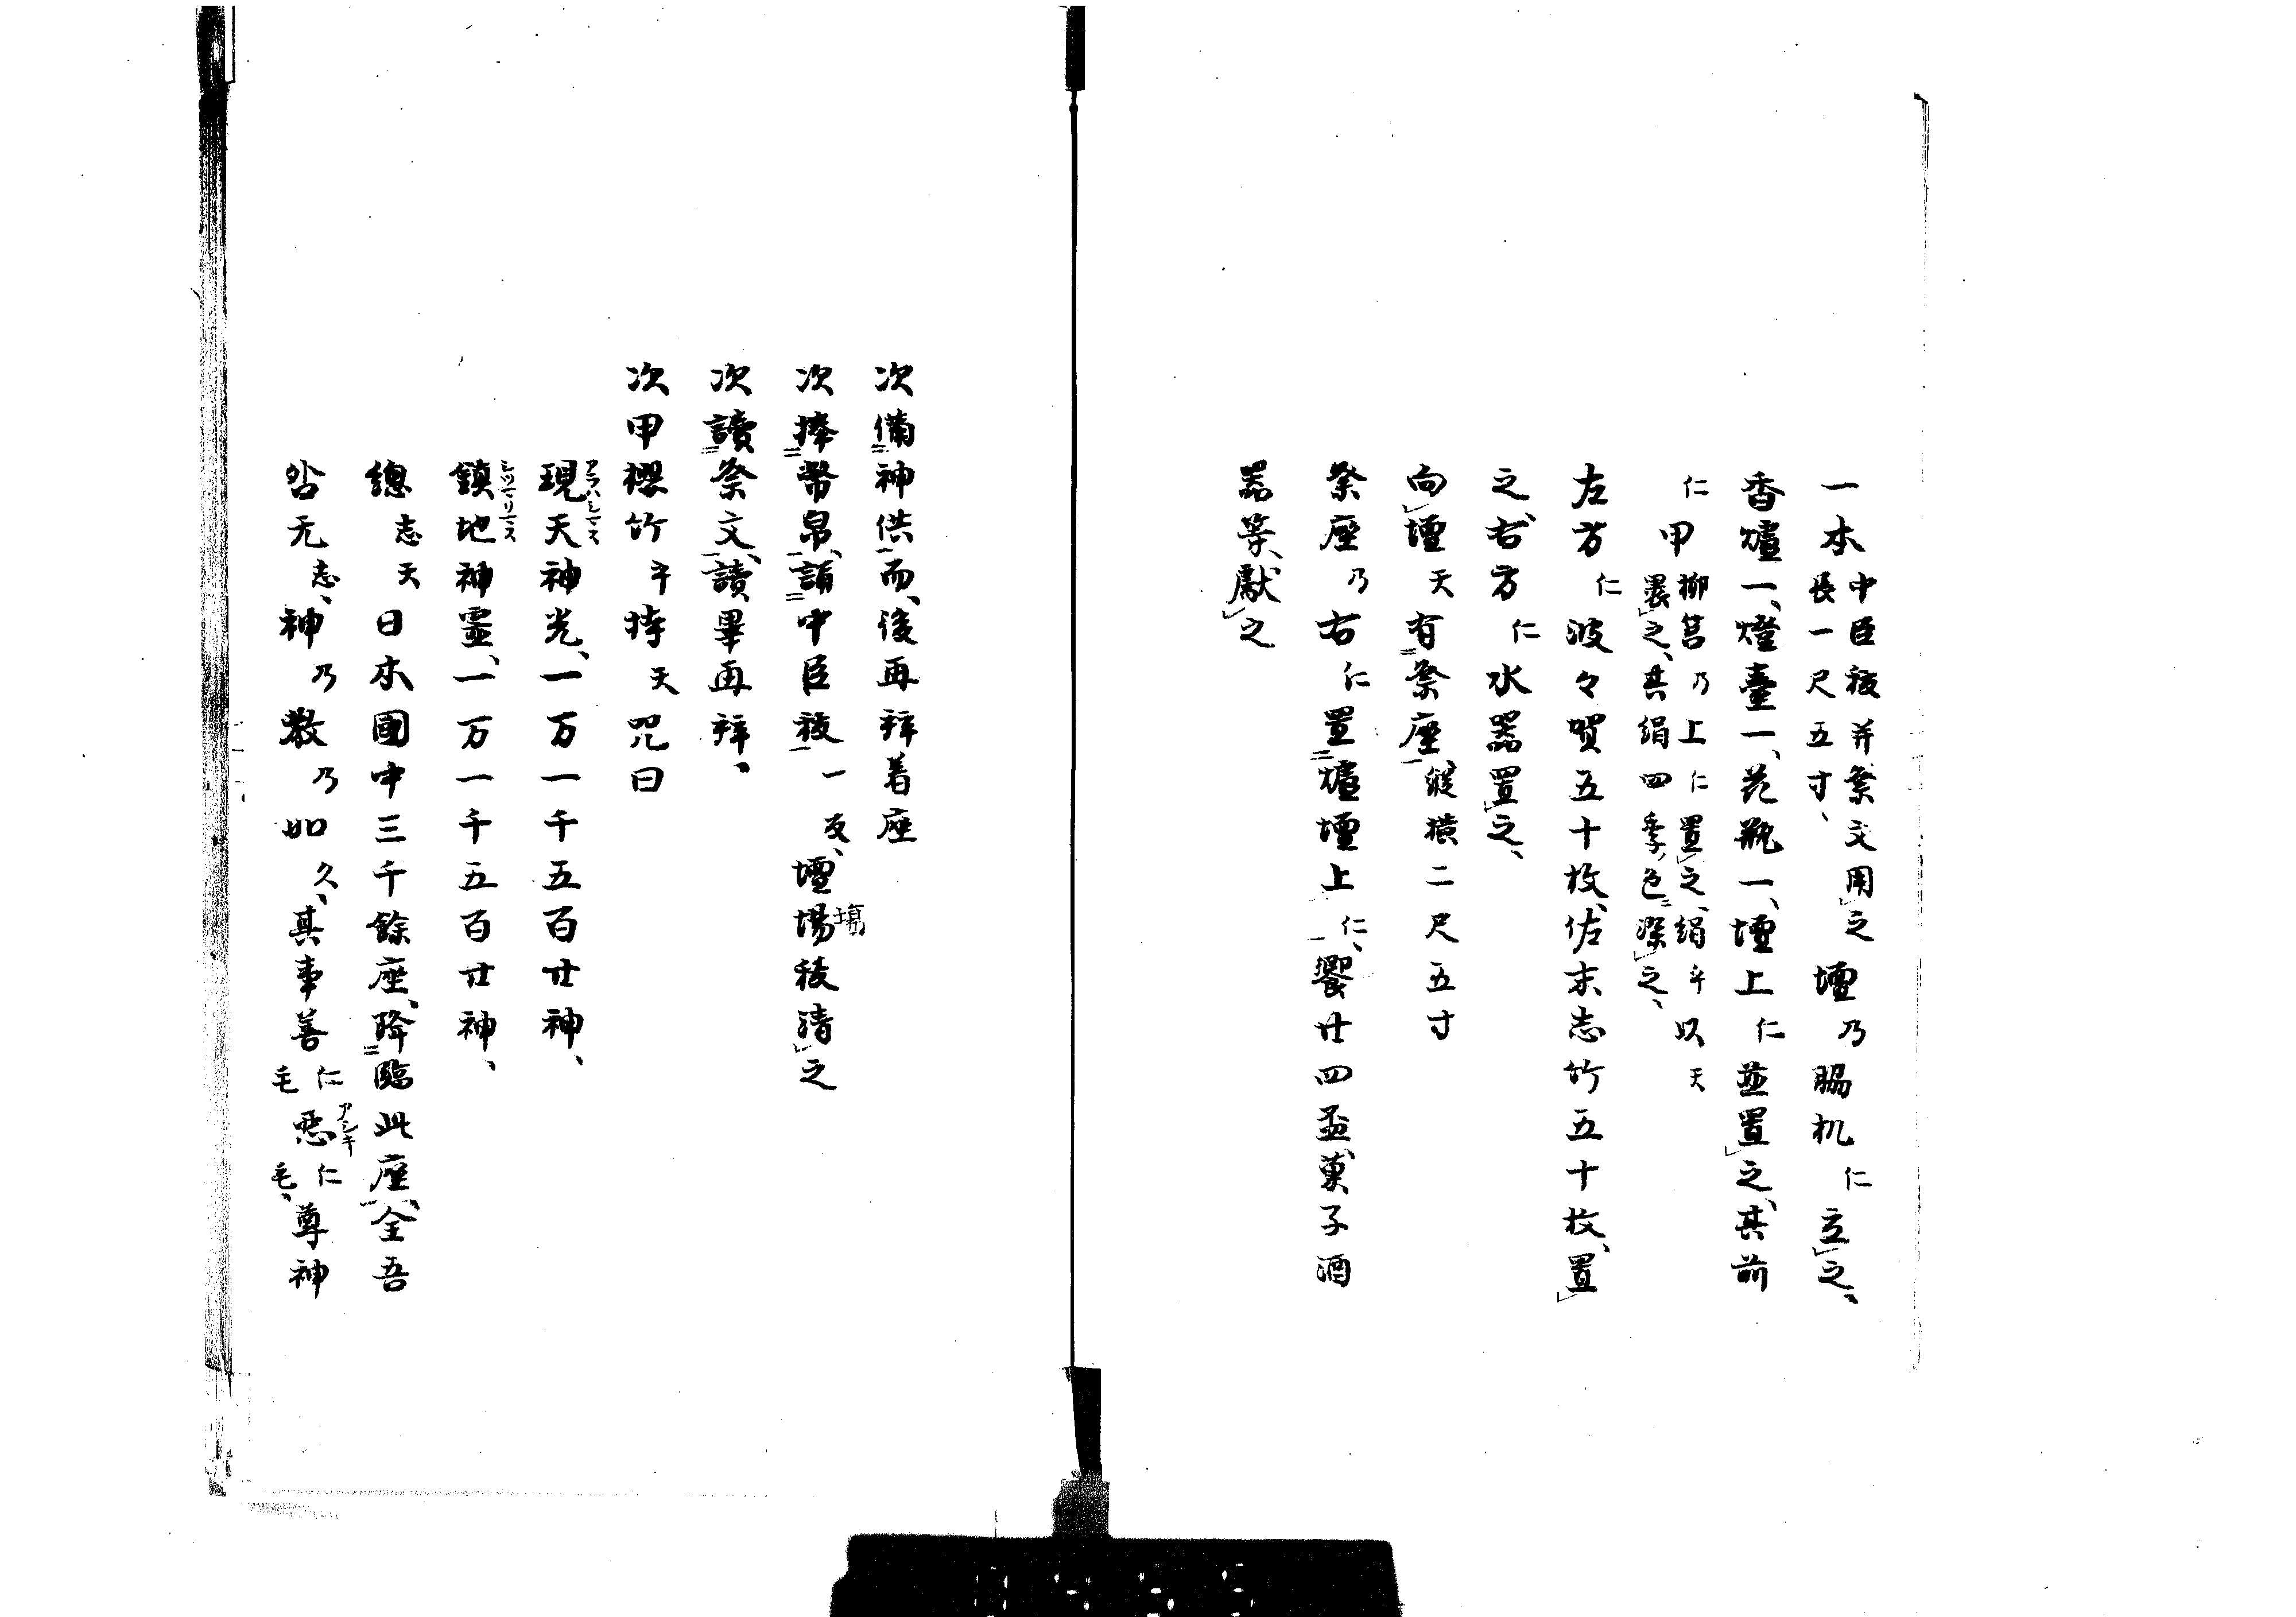 一本中臣祓并祭文用之長一尺五寸、壇乃脇机仁立之、
香爐一、燈臺一、花瓶一、壇上仁並置之、其前
仁甲柳筥乃上仁置之、絹乎以天褁之、其絹四季色深之、
左方仁波々賀五十枚、佐末志竹五十枚、置
之、右方仁水器置之、
向壇天有祭座、縦横二尺五寸
祭座乃右仁置爐壇上仁、饗廿四盃菓子酒
器等、獻之
次備神供而、後再拜着座
次捧幣帛、誦中臣祓一反、壇場塲祓清之
次讀祭文、讀畢再拜、
次甲櫻竹乎持天咒曰
現アラハシマス天神光、一万一千五百廿神、
鎮シツマリマス地神靈、一万一千五百廿神、
總志天日本國中三千餘座、降臨此座、全吾
咎无志、神乃教乃如久、其事善仁毛惡アシキ仁毛、尊神